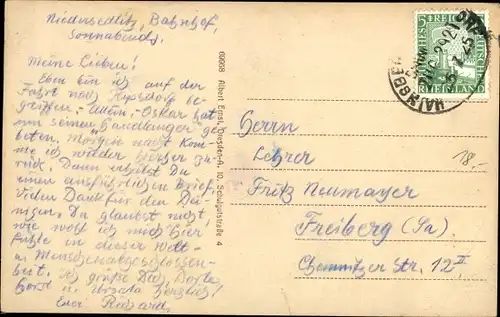 Niedersedlitz, Bahnhof,
Sonnabends.
Meine Lieben!
Eben bin ich auf der
Fahrt nach Kipsdorf be-
griffen. Allein. Oskar hat
um seinen Handlanger ge-
beten. Morgen nacht kom-
me ich wieder hierher zu-
rück. Dann erhältst Du
einen ausführlichen Brief.
Vielen Dank für den Dei-
nigen. Du glaubst nicht
wie wohl ich mich hier
fühle in dieser Welt-
u. Menschenabgeschlossen-
heit. Ich grüße Dich, Dorle,
Horst u. Ursula herzlich!
Euer Richard.
69908 Albert Ernst, Dresden-A. 10, Schulgutstraße 4
5 DEUTSCHES REICH 5
RHEINLAND
HAINSBERG
Herrn
Lehrer
Fritz Neumayer
Freiberg (Sa.)
Chemnitzer Str. 12 II.
18.-